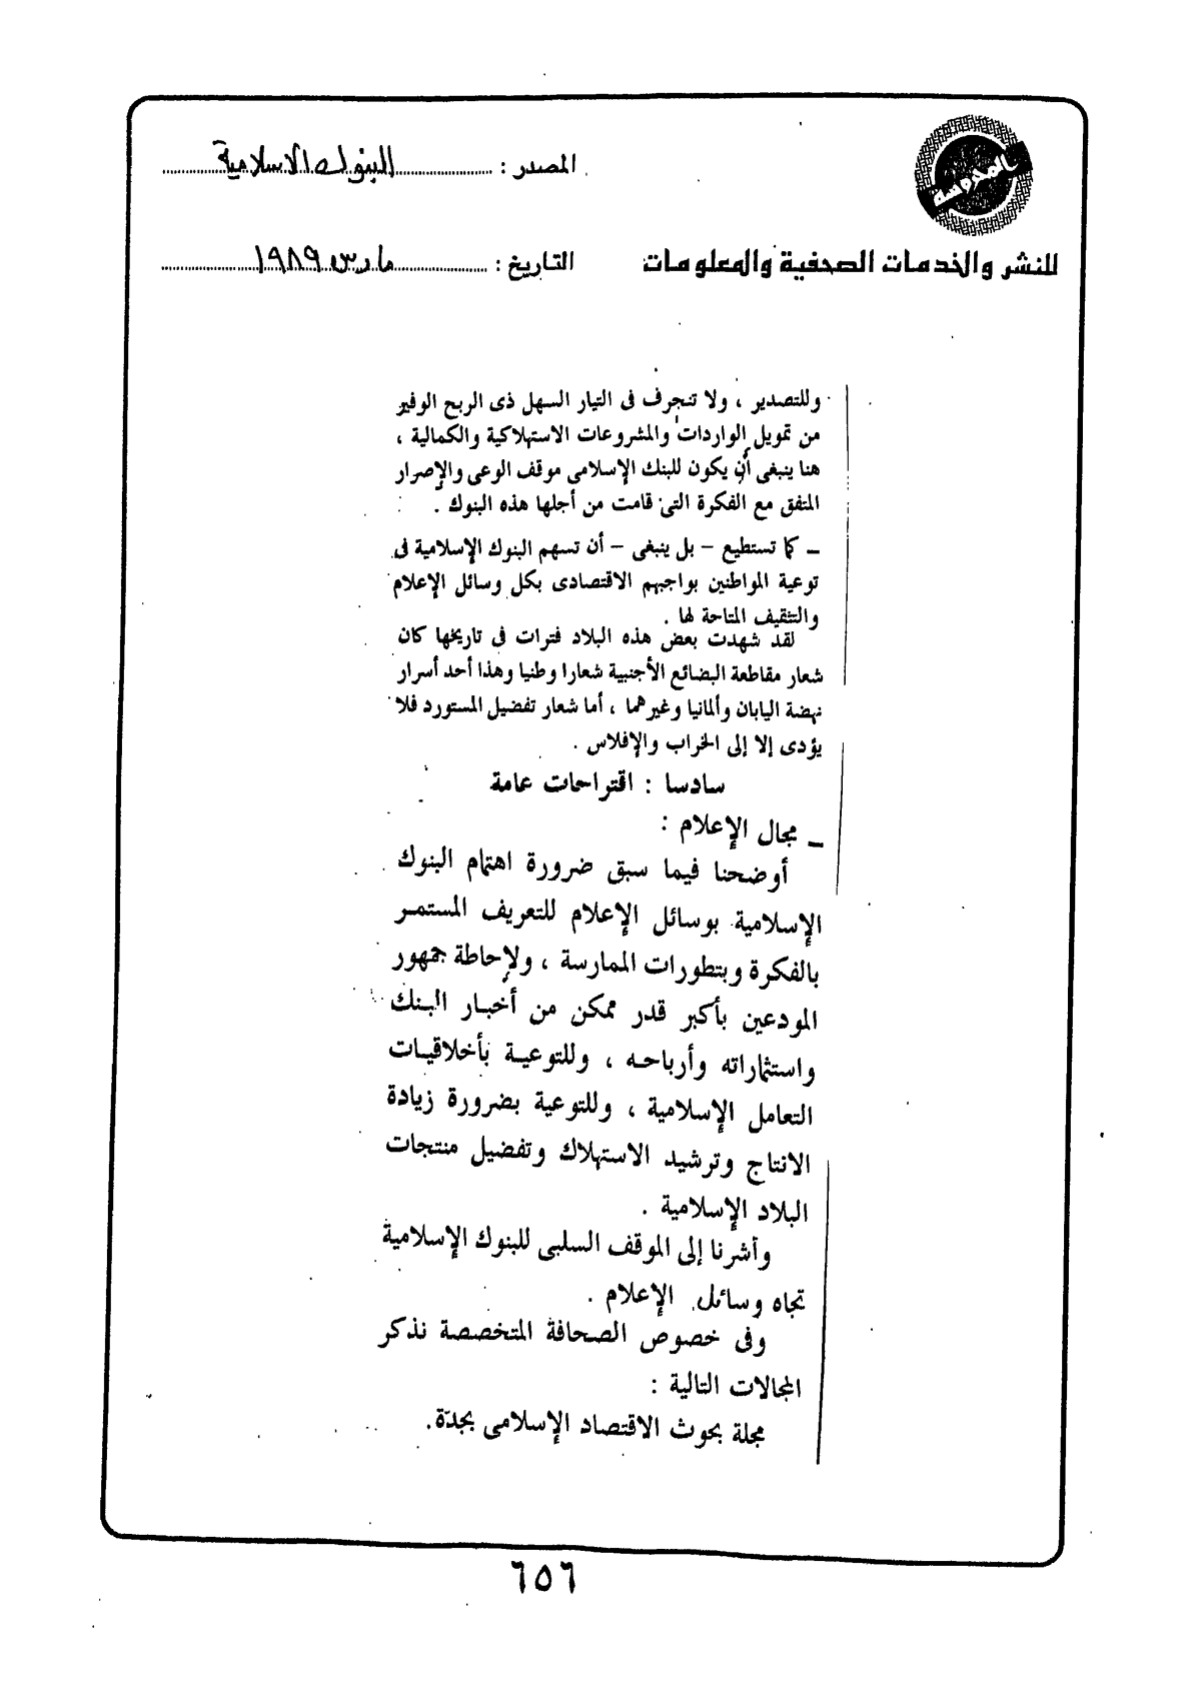 المحروسة
المصدر : البنوك الاسلامية
للنشر والخدمات الصحفية والمعلومات
التاريخ : مارس ١٩٨٩
وللتصدير ، ولا تنجرف فى التيار السهل ذى الربح الوفير
من تمويل الواردات والمشروعات الاستهلاكية والكمالية ،
هنا ينبغى أن يكون للبنك الإسلامى موقف الوعى والإصرار
المتفق مع الفكرة التى قامت من أجلها هذه البنوك .
– كما تستطيع – بل ينبغى – أن تسهم البنوك الإسلامية فى
توعية المواطنين بواجبهم الاقتصادى بكل وسائل الإعلام
والتثقيف المتاحة لها .
لقد شهدت بعض هذه البلاد فترات فى تاريخها كان
شعار مقاطعة البضائع الأجنبية شعارا وطنيا وهذا أحد أسرار
نهضة اليابان وألمانيا وغيرهما ، أما شعار تفضيل المستورد فلا
يؤدى إلا إلى الخراب والإفلاس .
سادسا : اقتراحات عامة
– مجال الإعلام :
أوضحنا فيما سبق ضرورة اهتمام البنوك
الإسلامية بوسائل الإعلام للتعريف المستمر
بالفكرة وبتطورات الممارسة ، ولإحاطة جمهور
المودعين بأكبر قدر ممكن من أخبار البنك
واستثماراته وأرباحه ، وللتوعية بأخلاقيات
التعامل الإسلامية ، وللتوعية بضرورة زيادة
الانتاج وترشيد الاستهلاك وتفضيل منتجات
البلاد الإسلامية .
وأشرنا إلى الموقف السلبى للبنوك الإسلامية
تجاه وسائل الإعلام .
وفى خصوص الصحافة المتخصصة نذكر
المجالات التالية :
مجلة بحوث الاقتصاد الإسلامى بجدّة.
٦٥٦